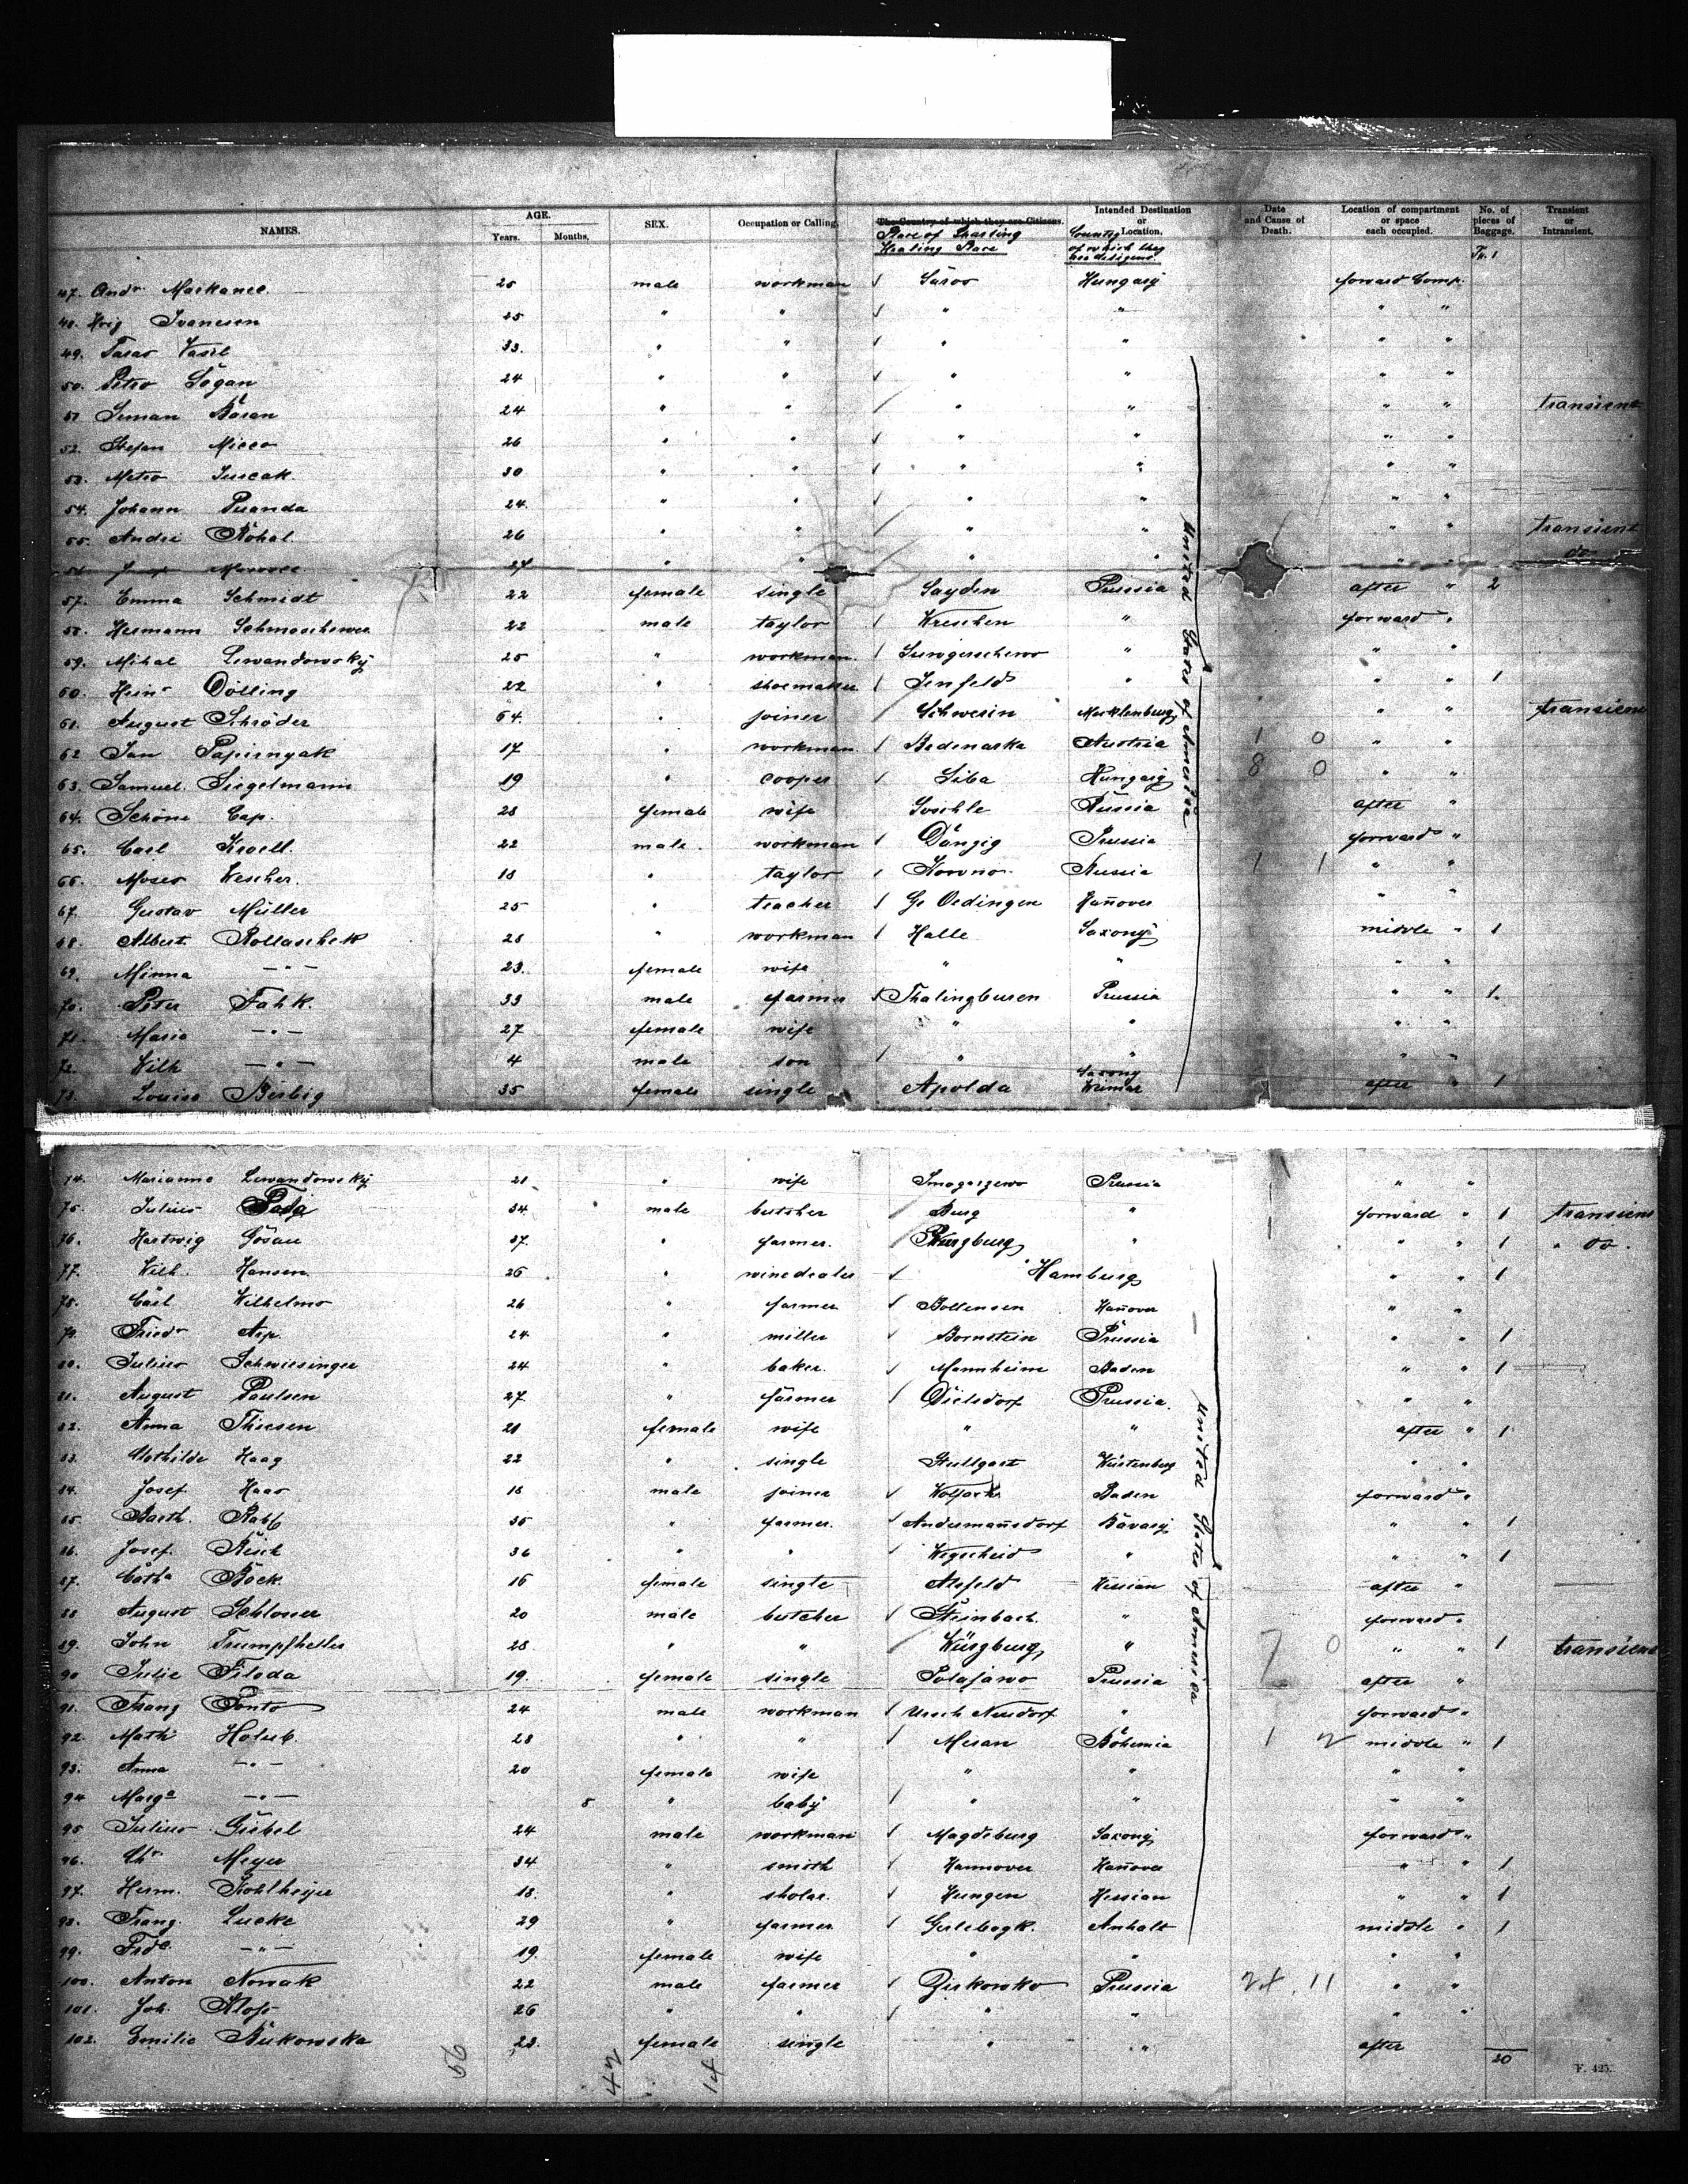 NAMES. AGE. Years. Months. SEX. Occupation or Calling. The Country of which they are Citizens. Place of Starting Intended Destination or Location. Country of which they Date and Cause of Death. Location of compartment or space each occupied. No. of pieces of Baggage. Transient or Intransient.
47. Andr. 25 male workman Saros Hungary forward Comp.
48. Ivancson 25 " " " " " "
49. Vasil 33. " " " " " "
50. Petro Sogan 24 " " " " " "
51 Seman Baran 24 " " " " " " transient
52. Stefan Micco 26 " " " " " "
53. Metro 30 " " " " " "
54. Johann Puanda 24. " " " " " "
55. Andre Rohal 26 " " " " " " transient
56. 24 " " " " " " do
57. Emma Schmidt 22 female single Sayden Prussia after " 2
58. Hermann 22 male taylor Wreschen " forward "
59. Mihal Lewandowsky 25 " workman. " " "
60. Heinr Dölling 22 " shoemaker Jenfeld " " " 1
61. August Schröder 64. " joiner Schwerin Mecklenburg " " transient
62 Jan Papiernyak 17 " workman Bednarka Austria 1 0 " "
63. Samuel Siegelmann 19 " cooper Siba Hungary 8 0 " "
64. Schöne Cap. 28 female wife Russia after "
65. Carl Kroell. 22 male. workman Danzig Prussia forward "
66. Moses Wescher. 18 " taylor Kowno. Russia 1 1 " "
67. Gustav Müller 25 " teacher Gr Oedingen Hañover " "
68. Albert Rollaschek 28 " workman Halle Saxony middle " 1
69. Minna — " — 23. female wife " " " "
70. Peter Fahk. 33 male farmer Thalingburen Prussia " " 1.
71. Maria — " — 27 female wife " " " "
72. Wilh — " — 4 male son " " " "
73. Louise Berbig 35 female single Apolda Saxony Weimar after " 1
United States of America
74. Marianna Lewandowsky 21 " wife Smogorzewo Prussia " "
75. Julius 34. male butcher Burg " forward " 1 transient
76. Hartwig Gosau 37. " farmer. " " " 1 " do.
77. Wilh. Hansen. 26 " winedealer Hamburg " " 1
78. Carl Wilhelms 26 " farmer Bollensen Hañover " "
79. Friedr Arp. 24. " miller Bornstein Prussia " " 1
80. Julius Schwiesinger 24 " baker. Mannheim Baden " " 1
81. August Paulsen 27. " farmer Dielsdorf Prussia. " "
82. Anna Thiesen 21 female wife " " after " 1
83. Mathilde Haag 22 " single Stuttgart Würtenberg " "
84. Josef Haas 18 male joiner Baden forward "
85. Barth. Rabl 35 " farmer. Andermañsdorf Bavary " " 1
86. Josef. Resch 36 " " Wegscheid " " " 1
87. Cath.a Böck. 16 female single Alsfeld Hessian after "
88 August Schlosser 20 male butcher Steinbach. " forward "
89. John Trumpfheller 28 " " Würzburg " 7 0 " " 1 transient
90 Julie Filoda 19. female single Polajawo Prussia after "
91. Franz Ponto 24 male workman Usch Neudorf " forward "
92. Math. Holub. 28 " " Mesan Bohemia 1 2 middle " 1
93. Anna — " — 20 female wife " " " "
94 Marg.e — " — 8 " baby " " " "
95 Julius Giebel 24 male workman Magdeburg Saxony forward "
96. Chr. Meyer 34 " smith Hannover Hañover " " 1
97. Herm. Kohlheyer 18. " sholar. Hungen Hessian " " 1
98. Franz. Lucke 29 " farmer Gerlebogk. Anhalt middle " 1
99. Frd.e — " — 19. female wife " " " "
100. Anton Nowak 22 male farmer Zirkowko Prussia 24. 11 " "
101. Joh. Kloss 26 " " " " " "
102. Emilie Bukowska 23. female single " " after
United States of America
20
F. 425.